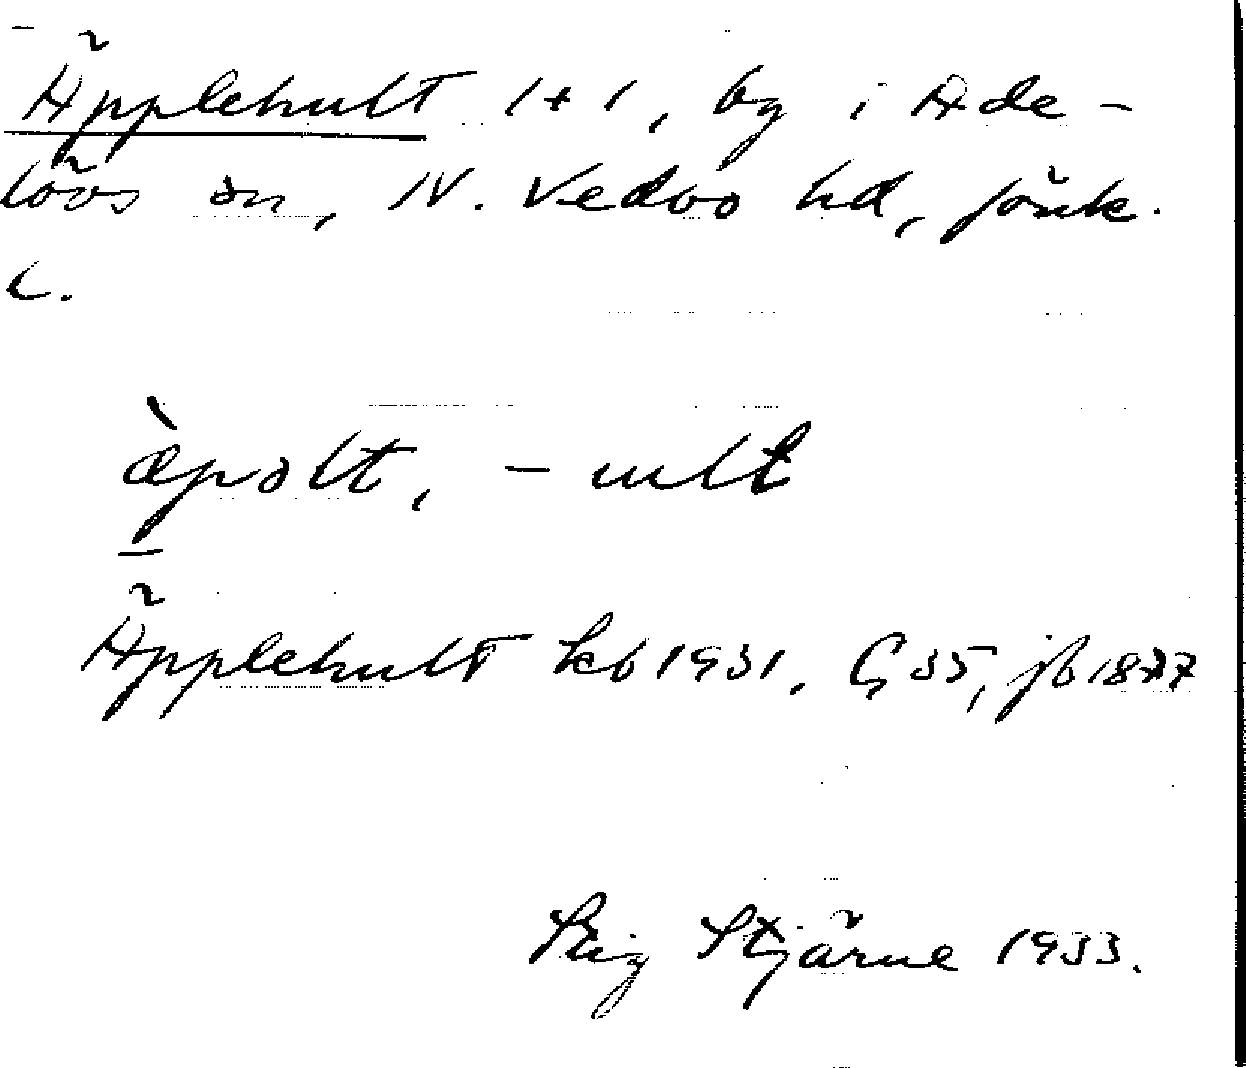 Äpplehult 1+1, by i Ade-
löös sn, N. Vedbo hd, Jönk.
l.
æ̀polt, -ult
Äpplehult kb 1931, G 35, jb 1877
Stig Stjärne 1933.